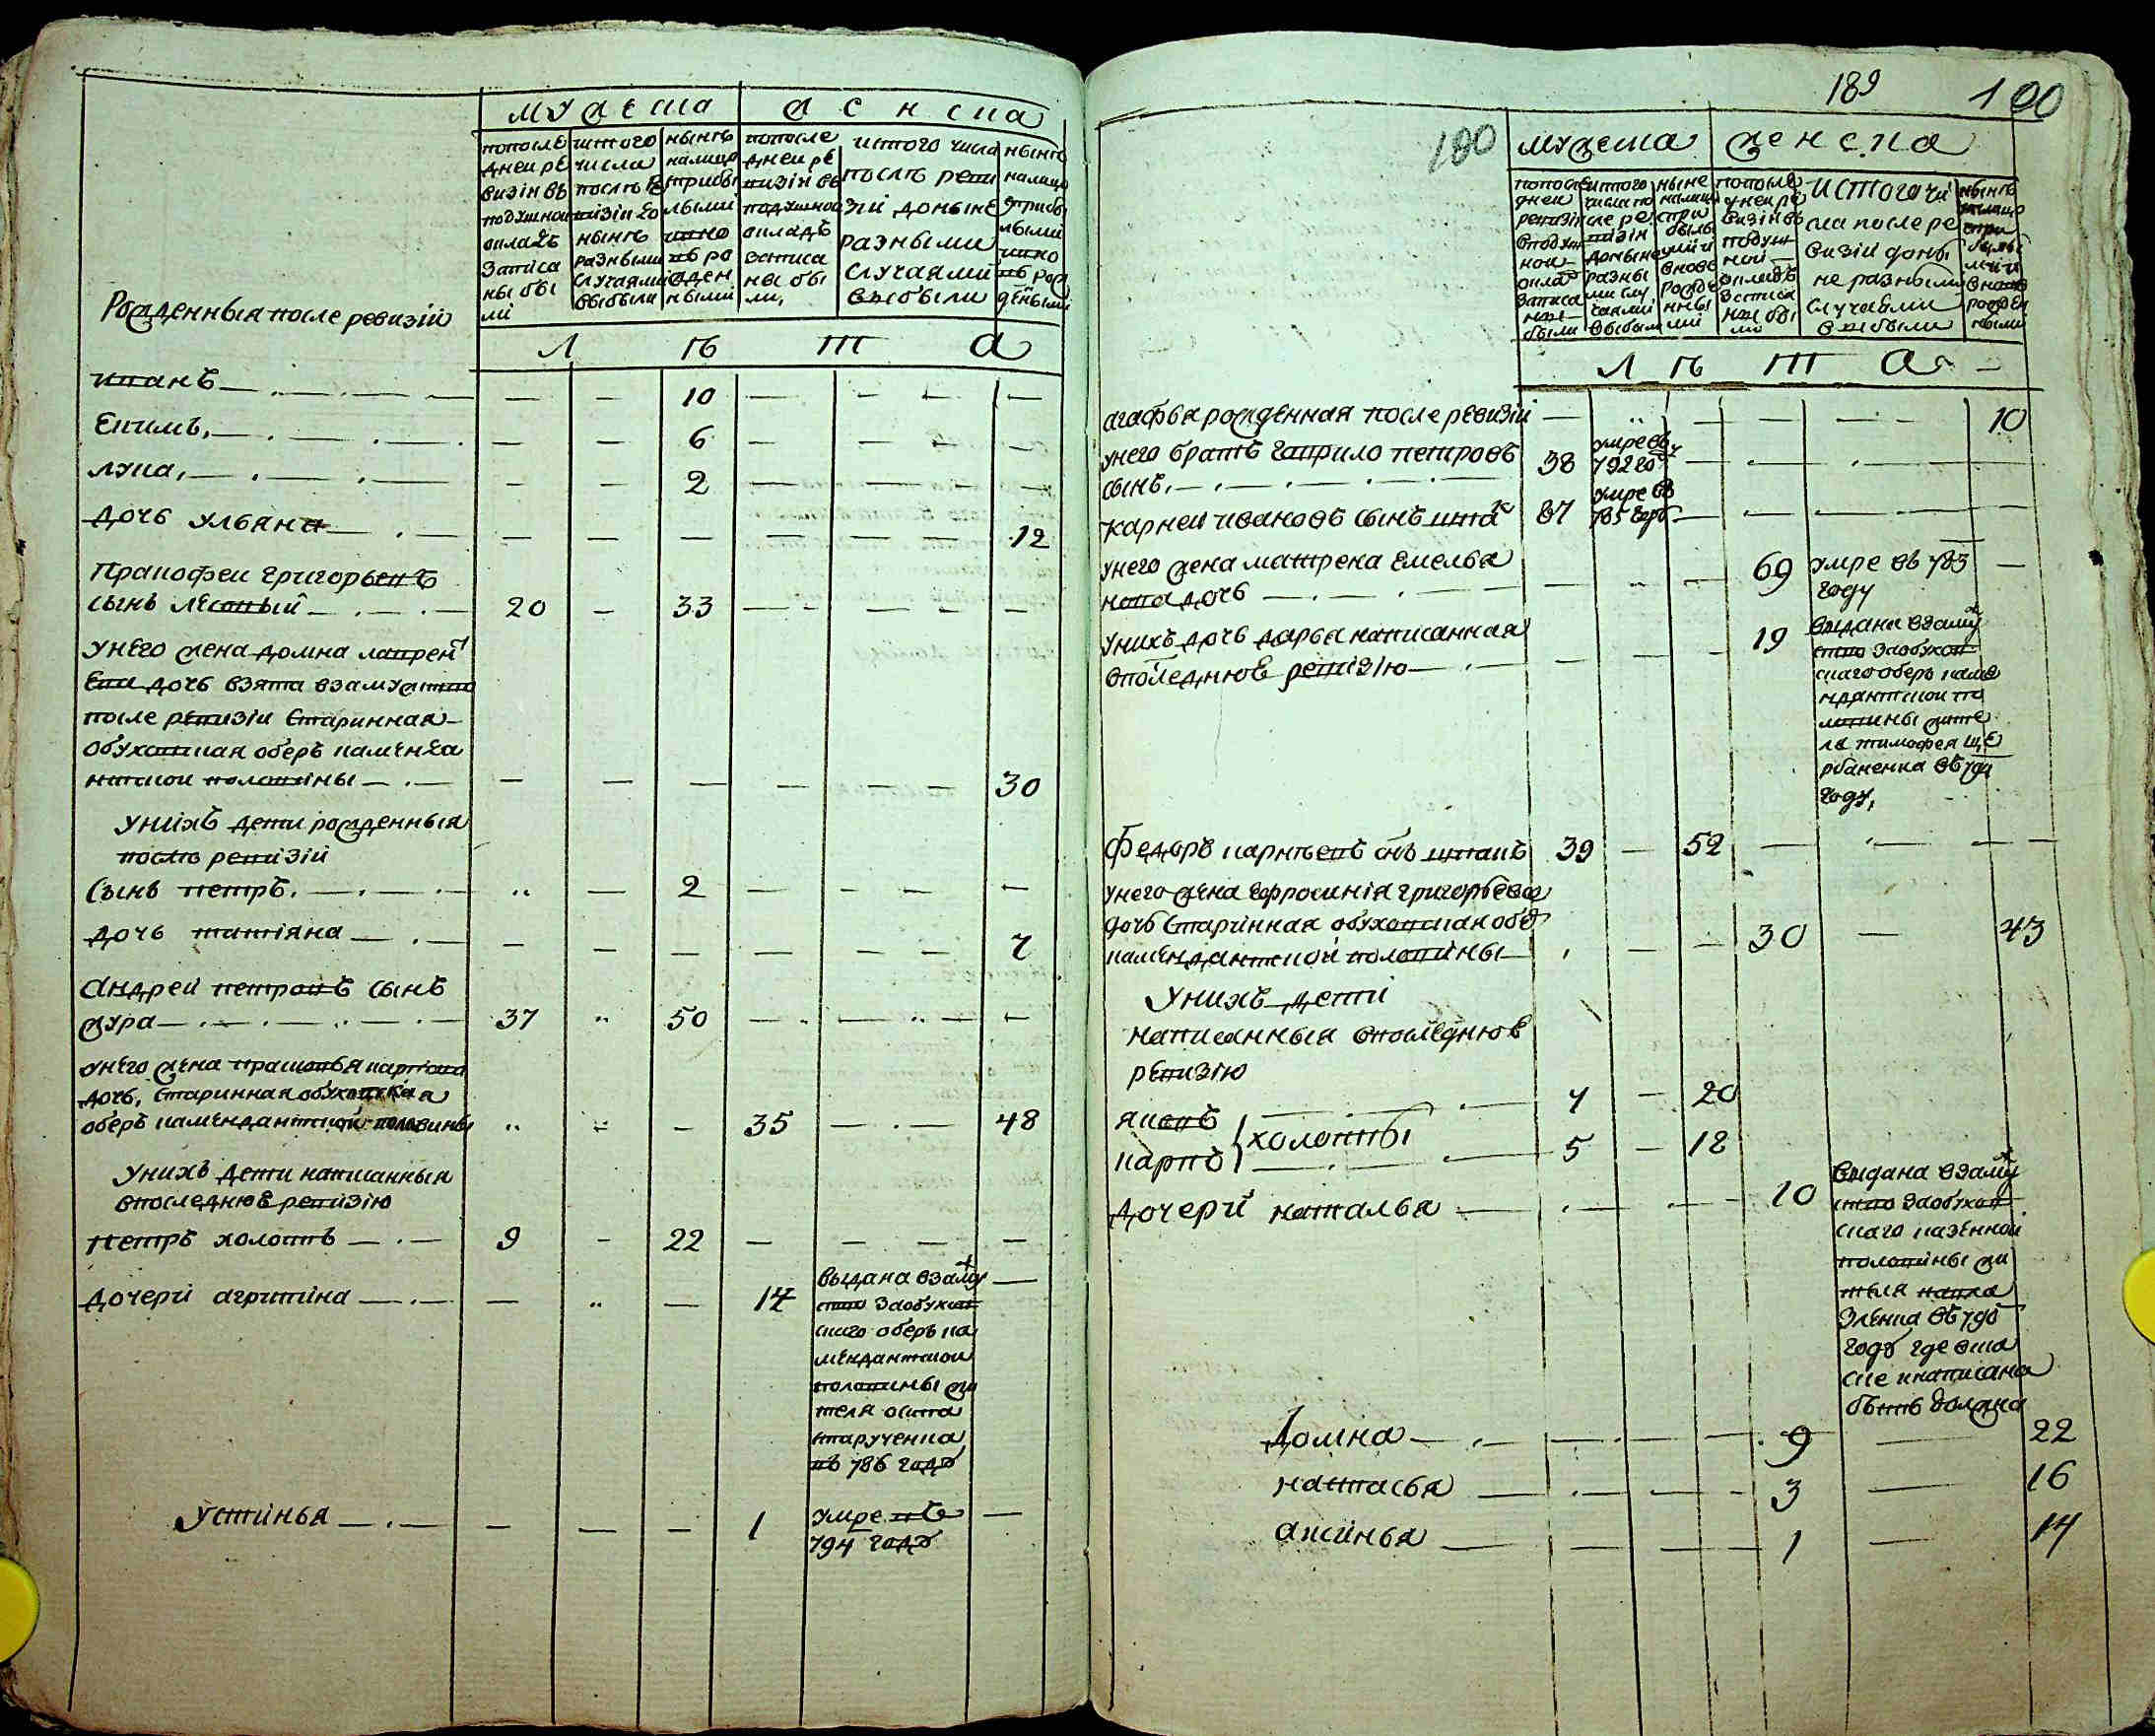 мужеска
женска
попосле дней ревизіи въ подушной окладъ записаны были
истого числа после ревизіи до нынѣ разными случаями выбыли
нынѣ налицо сприбылыми иновъ рожденными
попосле дней ревизіи въ подушной окладъ записаны были,
истого числа послѣ ревизіи до ныне разными случаями выбыли
нынѣ налицо сприбылыми иновъ рожденными
Рожденныя после ревизіи
Л ѣ т а
иванъ — — — 10 — — —
Екимъ, — — — 6 — — —
лука, — — — 2 — — —
дочь ульяна — — — — — — 12
Пракофей григорьевъ
сынъ лесовый — 20 — 33 — — —
унего жена домна лаврентьева
дочь взята взамужство
после ревизіи старинная
обуховская оберъ каменда
нтской половины — — — — — — 30
унихъ дети рожденныя
послѣ ревизіи
сынъ петръ. — .. — 2 — — —
дочь татіяна — — — — — — 7
Андрей петровъ сынъ
жура — 37 .. 50 — — —
унего жена прасковья карпова
дочь, старинная обуховская
оберъ камендантской половины .. .. — 35 — 48
унихъ дети написанныя
впоследнюю ревизію
петръ холостъ — 9 — 22 — — —
дочери агрипина — — .. — 14
выдана взаму
ство заобухов
скаго оберъ ка
мендантской
половины жи
теля осипа
въ 786 годѣ
устинья — — — — 1 умре въ —
794 годѣ
189 190
180
мужеска
женска
попосле дней ревизіи вподушной окладъ записаны были
истого числа после ревизіи доныне разны ми случаями выбыли
ныне налицо сприбылыми и вновь рожденны ми
попосле дней ревизіи въ подушной окладъ записаны были
истого числа после ревизіи донынѣ разными случаями выбыли
нынѣ налицо сприбылыми и вновь рожденными
Л ѣ т а
агафья рожденная после ревизіи — .. — — — 10
унего братъ гаврило петровъ 38 умре въ 792 году
сынъ, —
карней ивановъ сынъ 87 умре въ 785 году
унего жена матрена емелья
нова дочь — — .. — 69 умре въ 783 году —
унихъ дочь дарья написанная
впоследнюю ревизію — — — — 19
выдана взаму
ство заобухов
скаго оберъ каме
ндантской по
ловины жите
ля тимофея ще
рбаненка въ 791
году,
Федоръ карнѣевъ 39 — 52 — — —
унего жена ефросинія григорьева
дочь старинная обуховская обе
камендантской половины — 30 — 43
унихъ дети
написанныя впоследнюю
ревизію
яковъ — 7 — 20
холосты
карпъ — 5 — 18
дочери наталья — — — — 10
выдана взаму
ство заобухов
скаго казенной
половины жи
теля
въ 790
году где она
сіе инаписана
быть должна
домна — — — — 9 — 22
настасья — — — — 3 — 16
аксинья — — — — 1 — 14